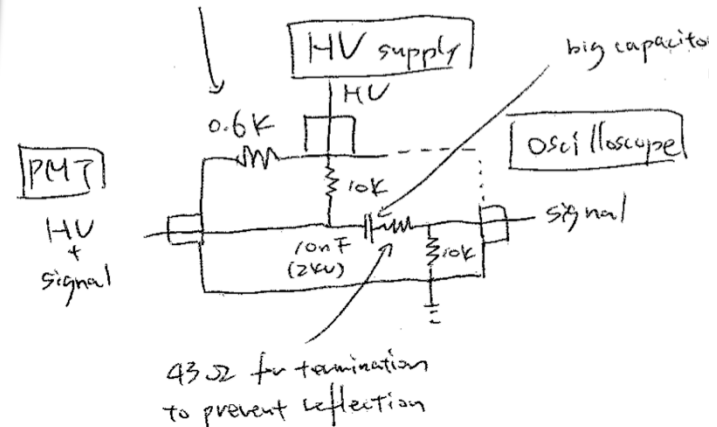 HV supply
big capacitor
HV
0.6K
PMT
Oscilloscope
10K
HV
+
signal
signal
10nF
(2KV)
10K
43Ω for termination
to prevent reflection